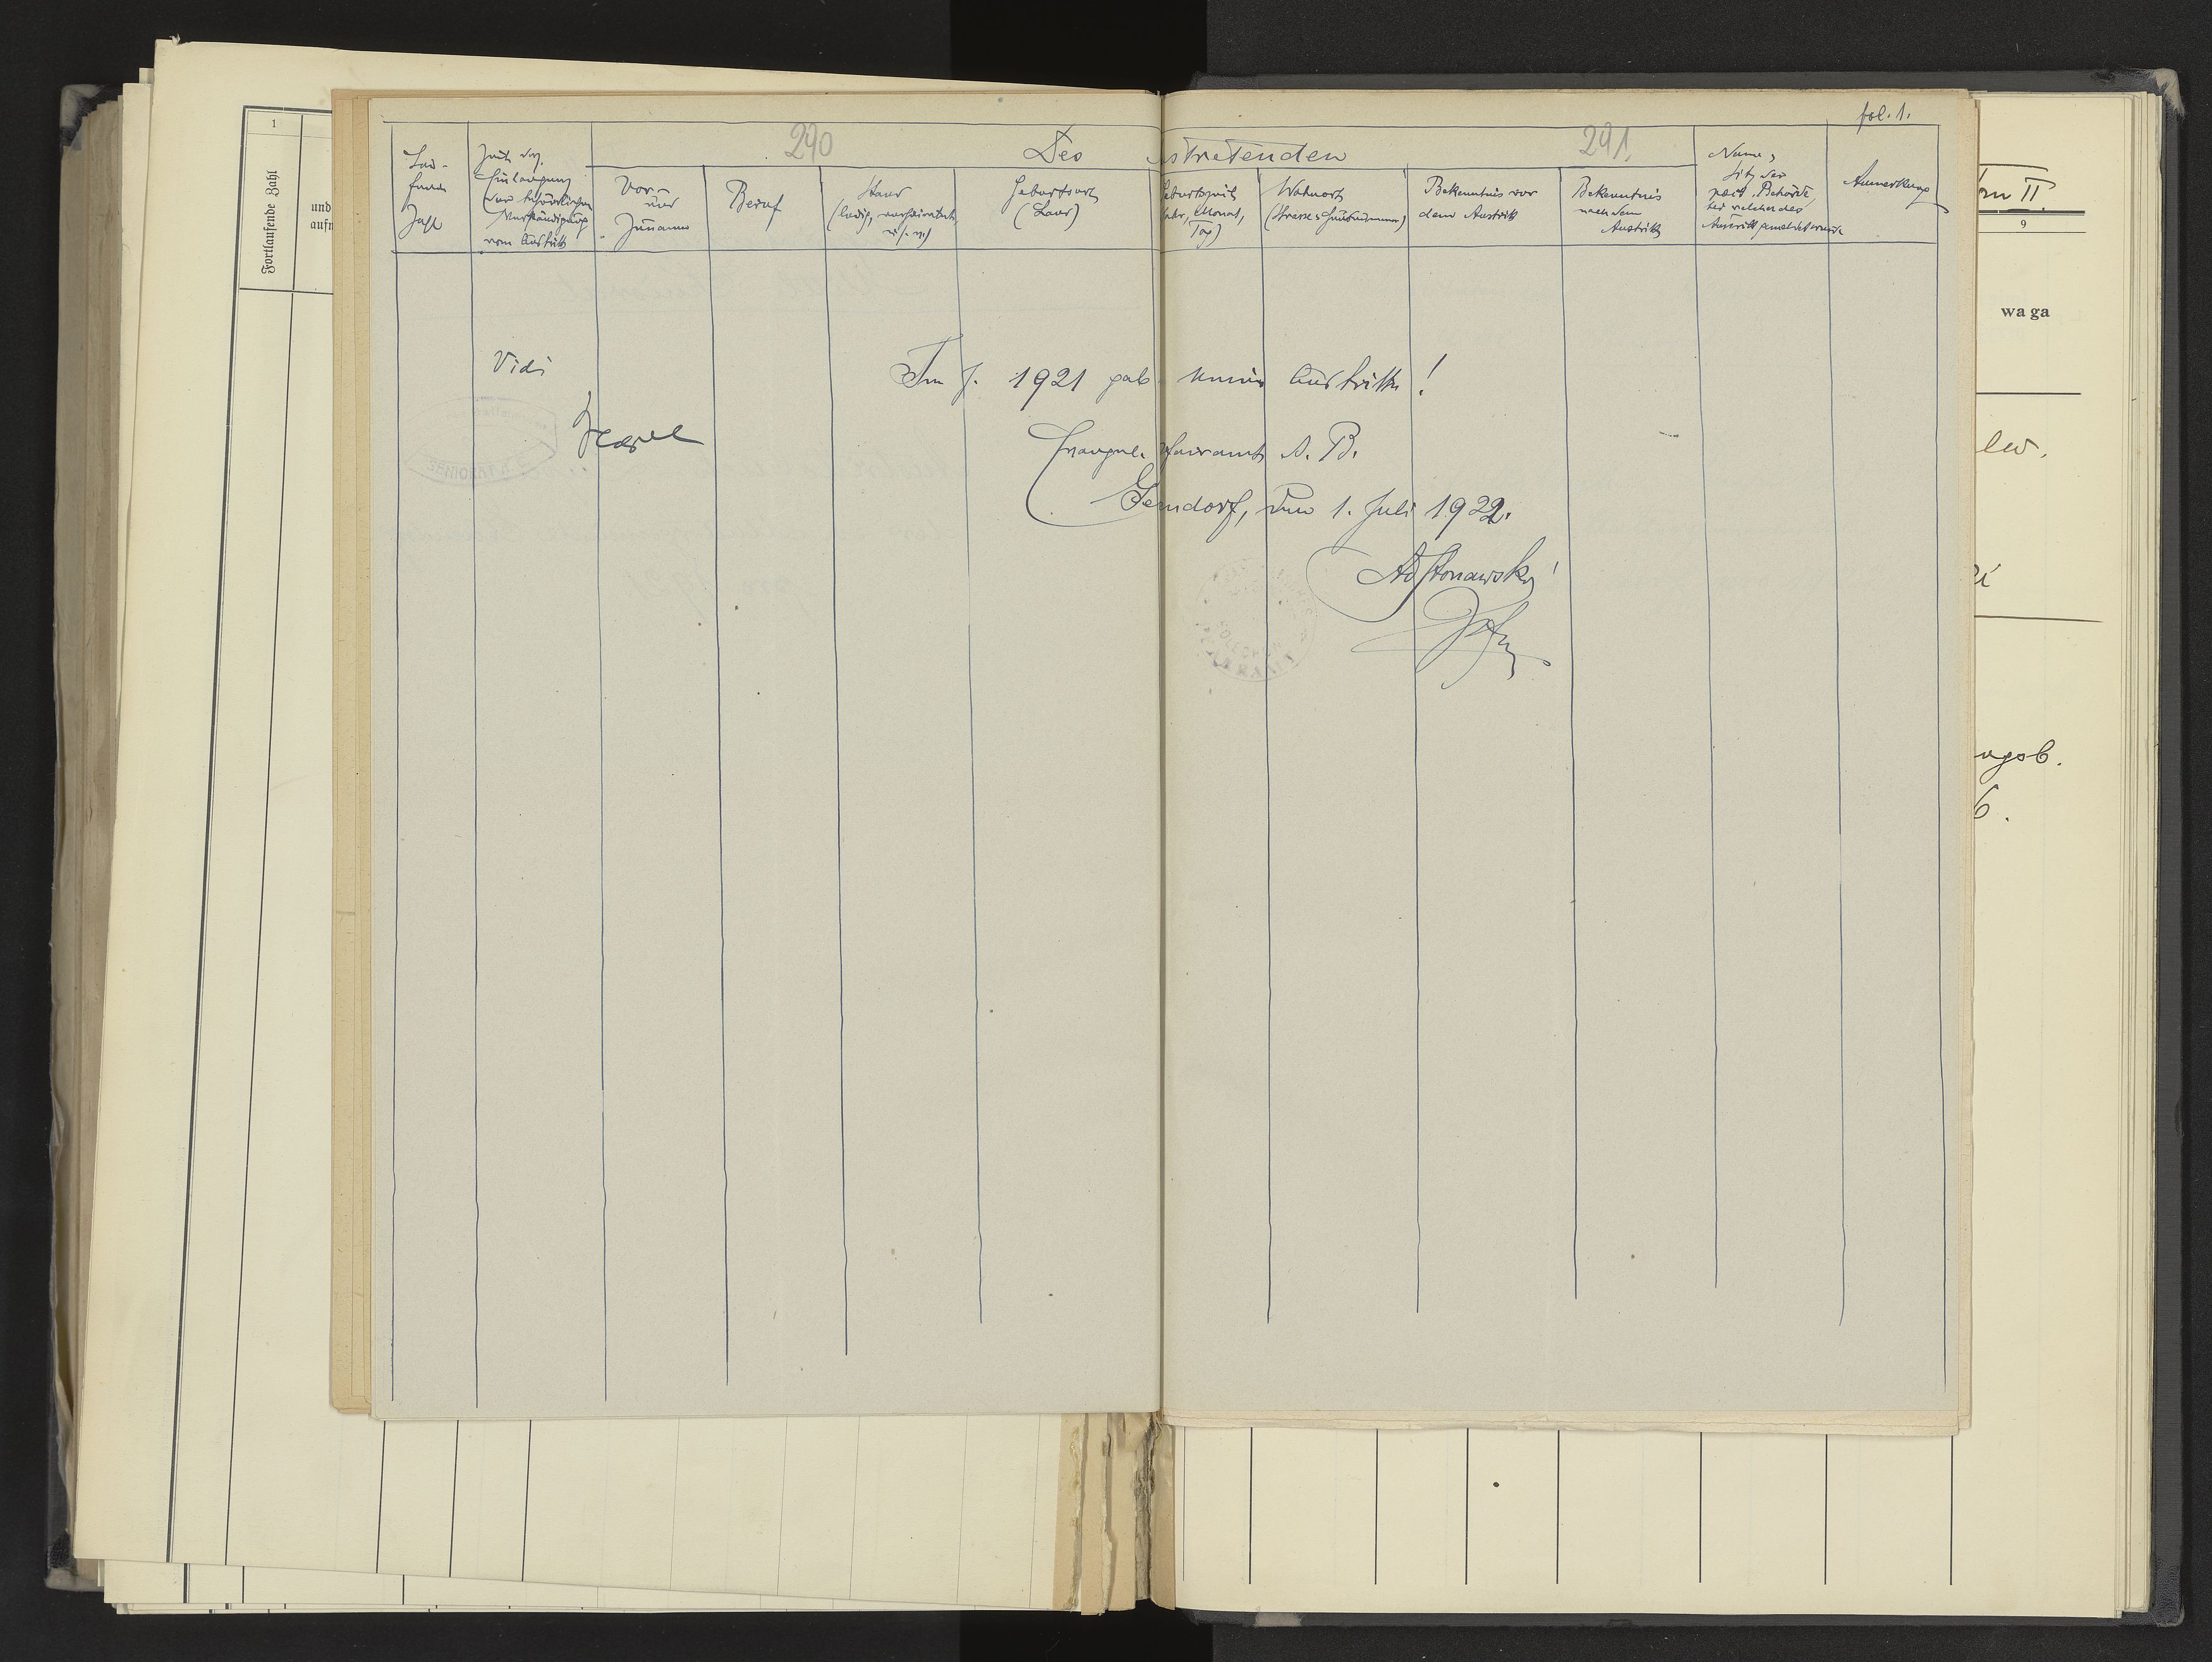 fol. 1.
240
241
Des
stretenden
Lau-
fende
Zahl
Zeit der
Einlangung
der behördlichen
Verständigung
vom Austritt
Vor-
und
Zuname
Beruf
Stand
(ledig, verheiratet,
Geburtsort
(Land)
Geburtszeit
Jahr, Monat,
Tag)
Wohnort
(Strasse, Hausnummer)
Bekenntnis vor
dem Austritt
Bekenntnis
nach dem
Austritt
Name,
Sitz der
Behörde,
bei welcher des
Austritt gemeldet wurde
Anmerkung
Vidi
Im J. 1921 gab keine Austritte!
Evangel. Pfarramt A. B.
den 1. Juli 1922.
1
Fortlaufende Zahl
und
9
waga
lew.